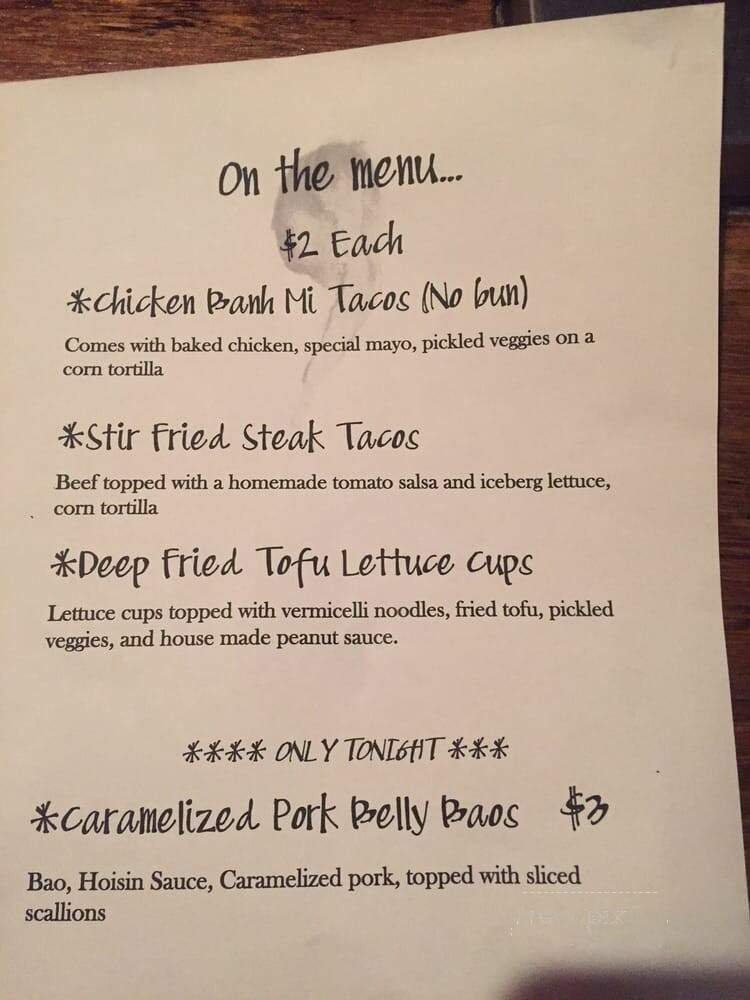 On the menu...
$2 Each
*Chicken Banh Mi Tacos (No bun)
Comes with baked chicken, special mayo, pickled veggies on a
corn tortilla
*Stir Fried Steak Tacos
Beef topped with a homemade tomato salsa and iceberg lettuce,
corn tortilla
*Deep Fried Tofu Lettuce Cups
Lettuce cups topped with vermicelli noodles, fried tofu, pickled
veggies, and house made peanut sauce.
**** ONLY TONIGHT ***
*Caramelized Pork Belly Baos $3
Bao, Hoisin Sauce, Caramelized pork, topped with sliced
scallions